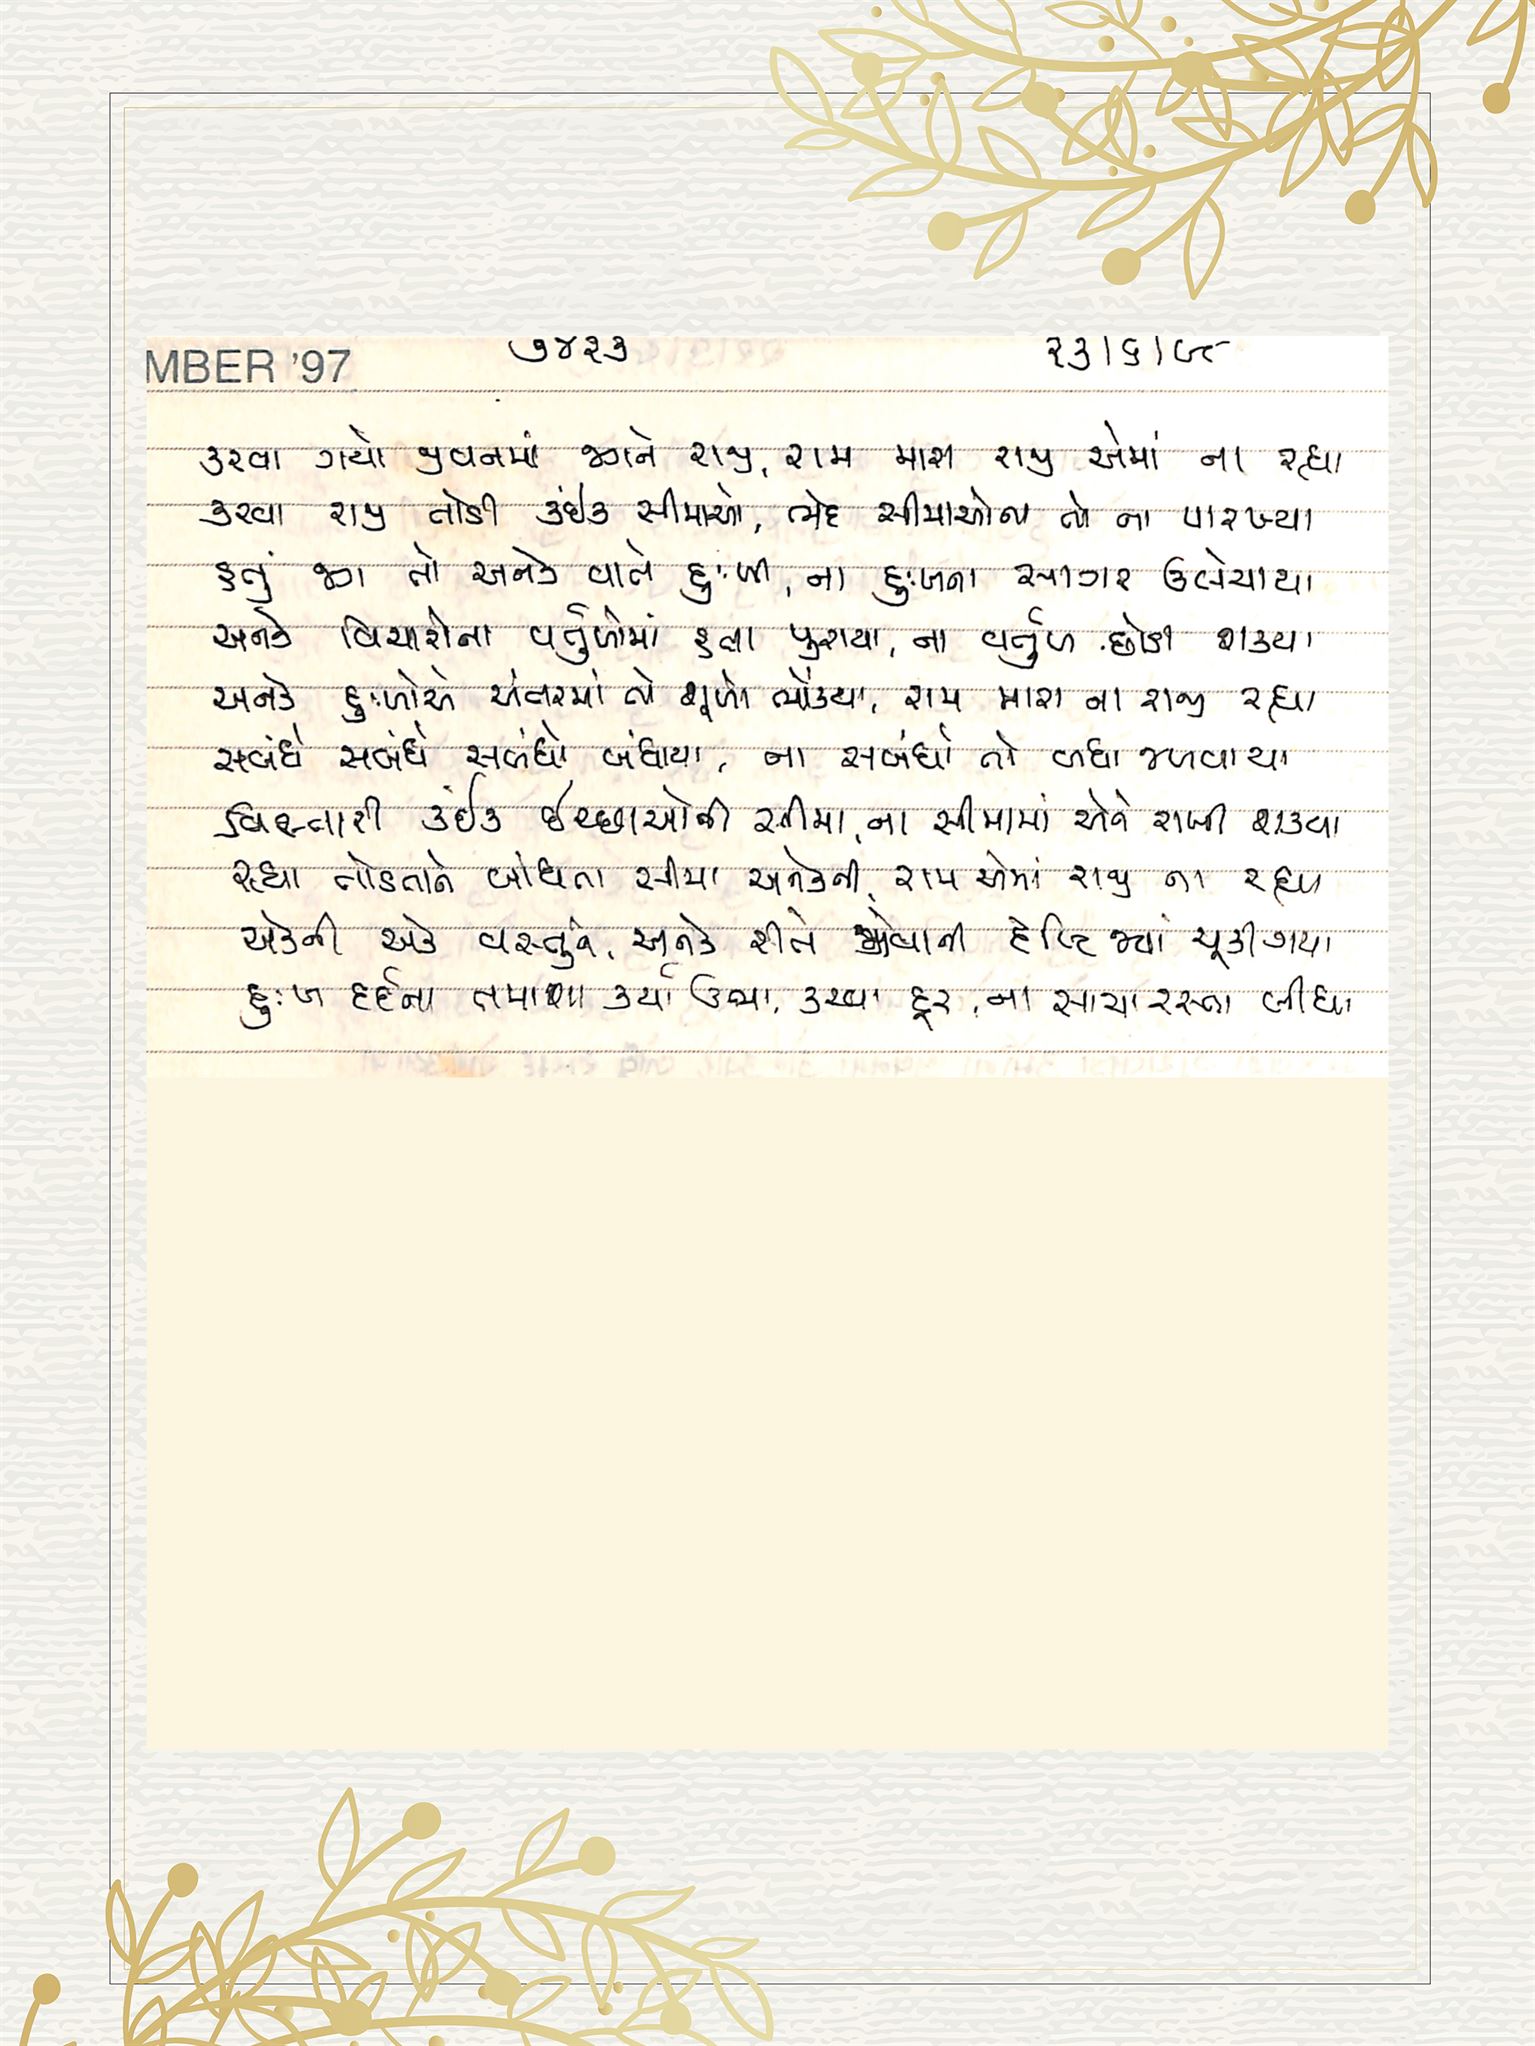 MBER '97
૭૪૨૩ ૨૩/૬/૯૮
કરવા ગયો જીવનમાં જગને રાજી, રામ મારા રાજી એમાં ના રહ્યા
કરવા રાજી તોડી કંઈક સીમાઓ, ભેદ સીમાઓના તો ના પારખ્યા
હતું જગ તો અનેક વાતે દુઃખી, ના દુઃખના સાગર ઉલેચાયા
અનેક વિચારોના વર્તુળોમાં હતા પુરાયા, ના વર્તુળ છોડી શક્યા
અનેક દુઃખોએ અંતરમાં તો શૂળો ભોંક્યા, રામ મારા ના રાજી રહ્યા
સબંધે સબંધે સબંધો બંધાયા, ના સબંધો તો બધા જળવાયા
વિસ્તારી કંઈક ઈચ્છાઓની સીમા, ના સીમામાં એને રાખી શક્યા
રહ્યા તોડતાને બાંધતા સીમા અનેકની, રામ એમાં રાજી ના રહ્યા
એકની એક વસ્તુને, અનેક રીતે જોવાની દૃષ્ટિ જ્યાં ચૂકી ગયા
દુઃખ દર્દના તમાશા કર્યા ઉભા, કરવા દૂર, ના સાચા રસ્તા લીધા